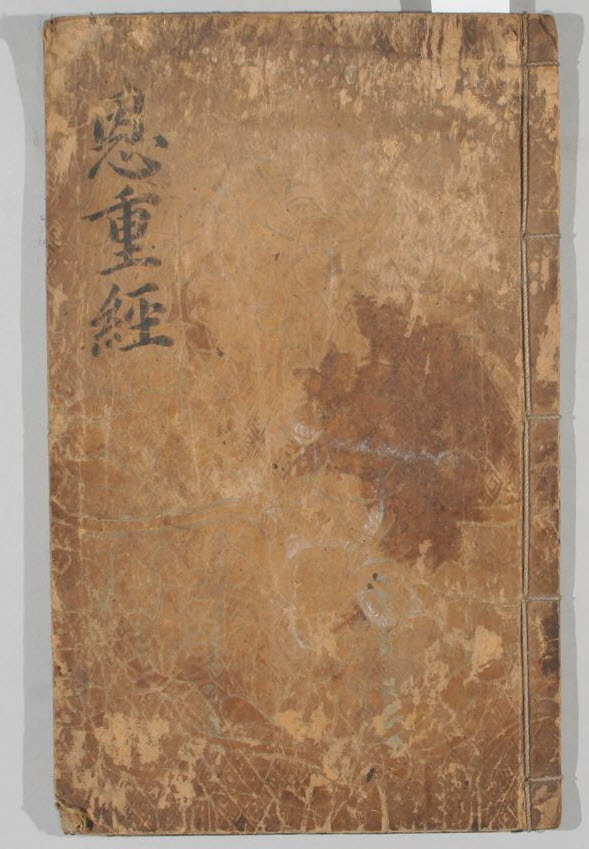 恩重經